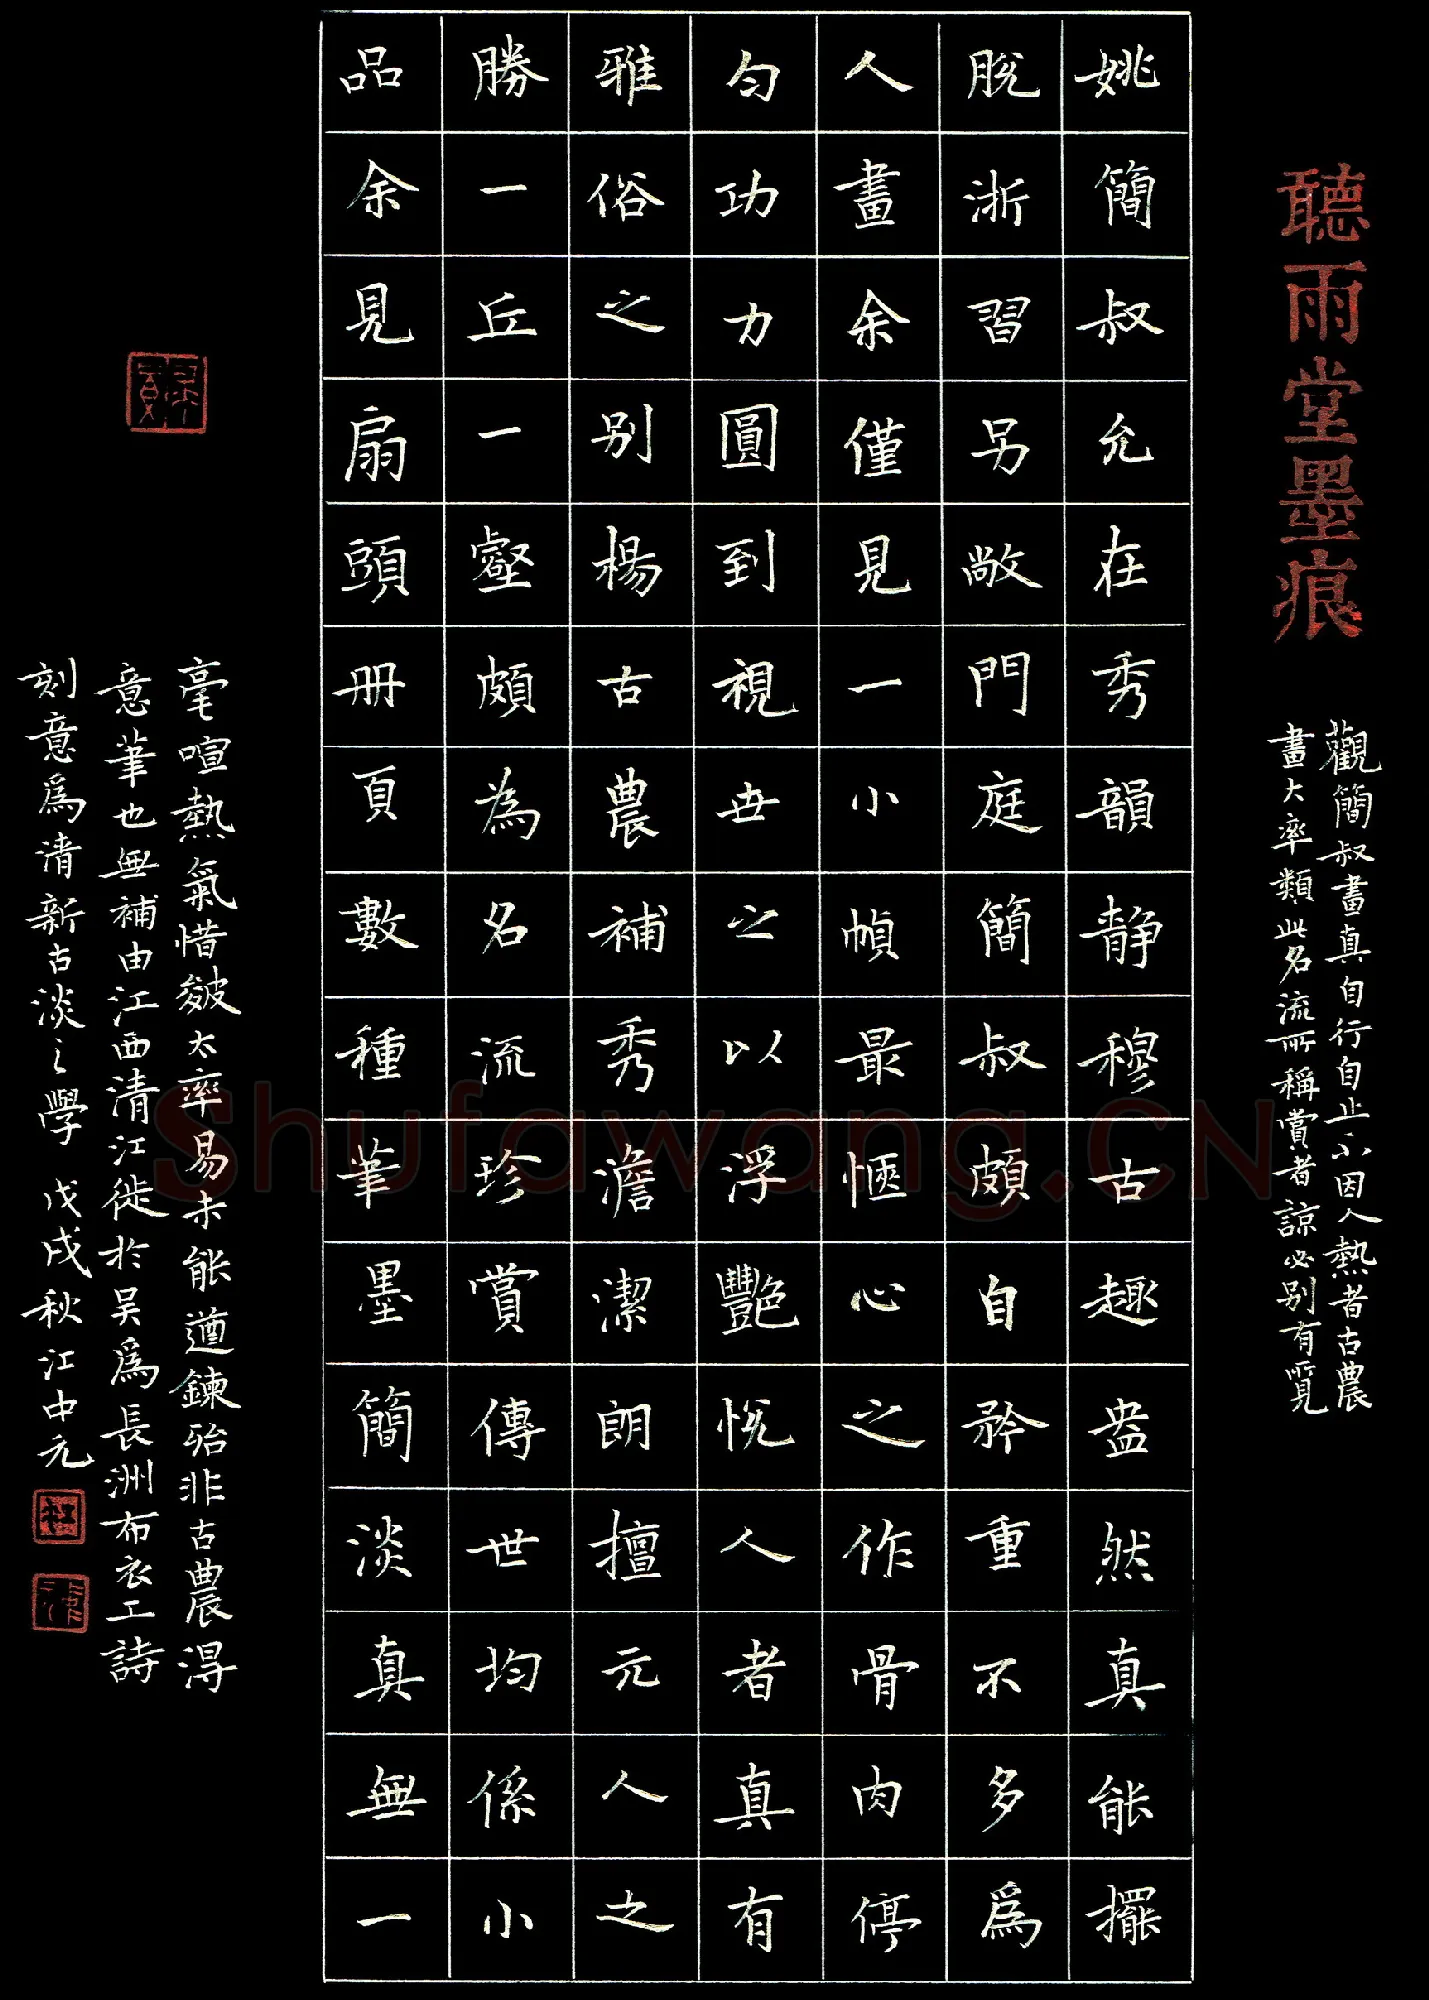 聽雨堂墨痕
觀簡叔畫真自行自止不因人熱者古農
畫大率類此名流所稱賞者諒必別有覽
姚簡叔允在秀韻靜穆古趣盎然真能擺
脫浙習另敞門庭簡叔頗自矜重不多為
人畫余僅見一小幀最愜心之作骨肉停
勻功力圓到視世之以浮豔悅人者真有
雅俗之別楊古農補秀澹潔朗擅元人之
勝一丘一壑頗為名流珍賞傳世均係小
品余見扇頭冊頁數種筆墨簡淡真無一
毫喧熱氣惜皴太率易未能遒鍊殆非古農得
意筆也無補由江西清江徙於吳為長洲布衣工詩
刻意為清新古淡之學 戊戌秋江中元
Shufawang.CN